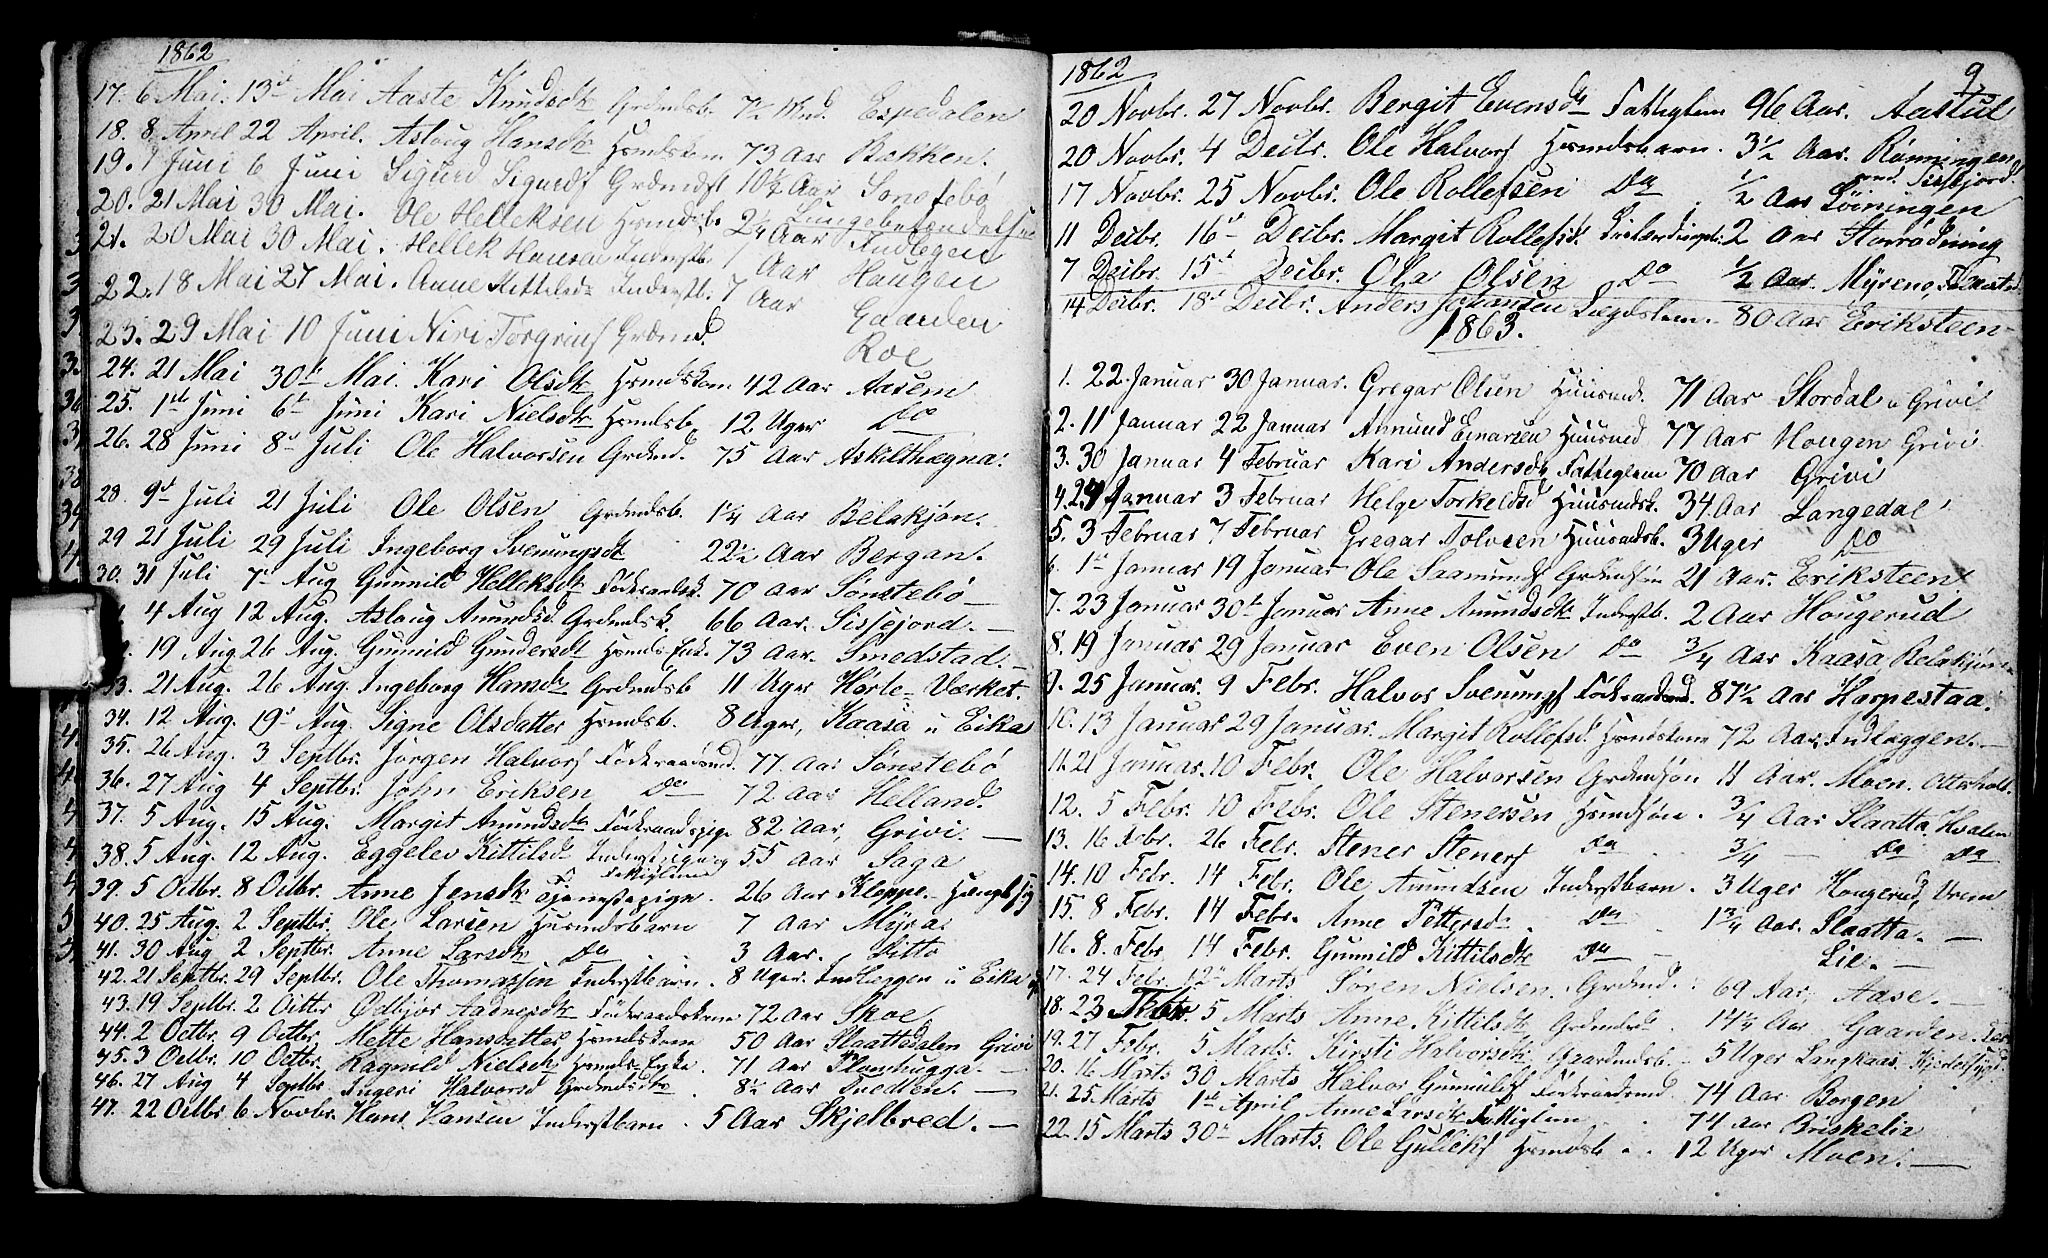 1862
17. 6 Mai. 13de Mai Aaste Knudsdtr Grdmdsb. 7½ Mnd. Espedalen
18. 8 April 22 April. Aslaug Hansdtr Hsmdskone 73 Aar Bakken.
19. 1 Juni 6 Juni Sigurd Sigurds Grdmds 10½ Aar Sønstebø
20. 21 Mai 30 Mai. Ole Helleksen Hsmdsb. 2¼ Aar Lungebetændelse Indlegen
21. 20 Mai 30 Mai. Hellek Hansen Inderstb. 7 Aar Haugen
22. 18 Mai 27 Mai. Anne Kittilsd Inderstb. 7 Aar Gaarden
23. 29 Mai 10 Juni Niri Torgrims Grdmd. Roe
24. 21 Mai 30te Mai. Kari Olsdtr Hsmdskone 42 Aar Aasem
25. 1ste Juni 6te Juni Kari Nielsdtr Hsmdsb. 12 Uger do
26. 28 Juni 8de Juli Ole Halvorsen Grdmd. 75 Aar Askilthægna.
28. 9de Juli 21 Juli Ole Olsen Grdmdsb. 1¼ Aar Belakjøn.
29 21 Juli 29 Juli Ingeborg Svenungsdtr 22½ Aar Bergan.
30. 31 Juli 7de Aug Gunnild Helleksdtr Föderaadsk. 70 Aar Sønstebø
4 Aug 12 Aug. Aslaug Amundsd. Grdmdsk. 66 Aar. Sissejord.
19 Aug 26 Aug. Gunnild Gundersdtr Hsmds Enke. 73 Aar. Smedstad.
33. 21 Aug. 26 Aug. Ingeborg Hansdtr Grdmdsb 11 Uger Hørte-Værket.
34. 12 Aug. 19de Aug. Signe Olsdatter Hsmdsb. 8 Uger, Kaasa u Eika
35. 26 Aug. 3 Septbr. Jørgen Halvors Föderaadsmd. 77 Aar Sønstebø
36. 27 Aug 4 Septbr. John Eriksen do 72 Aar Helland.
37. 5 Aug. 15 Aug. Margit Amundsdtr Föderaadspige 82 Aar, Grivi.
38. 5 Aug. 12 Aug. Eggelev Kittilsd 55 Aar Saga
39. 5 Octbr. 8 Octbr. Anne Jensdtr Tjenestepige. 26 Aar Kleppe.
40. 25 Aug. 2 Septbr. Ole Larsen Husmdsbarn 7 Aar Myra.
41. 30 Aug 2 Septbr. Anne Larsdtr do 3 Aar. Ditto
42. 21 Septbr. 29 Septbr. Ole Thomassen Inderstbarn. 8 Uger. Indleggen u Eika
43. 19 Septbr. 2 Octbr Ødbjør Aadnesdtr Föderaadskone 72 Aar Skoe.
44. 2 Octbr. 9 Octbr. Mette Hansdatter Hsmdskone 50 Aar Slaattedalen Grivi
45. 3 Octbr. 10 Octbr. Ragnild Nielsdtr Hsmds-Enke. 71 Aar Plomhugga.
46. 27 Aug 4 Septbr Ingeri Halvorsd Grdmdsb. 8½ Aar Snedten.
47. 22 Octbr 6 Novbr. Hans Hansen Inderstbarn. 5 Aar Skjelbred.
1862
9
20 Novbr. 27 Novbr. Bergit Evensdtr Fattiglem 96 Aar. Aastul
20 Novbr. 4 Decbr. Ole Halvors Hsmdsbarn. 3½ Aar. Rønningen
und. Sissejord.
17 Novbr. 25 Novbr. Ole Rollefsen do ½ Aar Løiningen
11 Decbr. 16de Decbr. Margit Rollefsd. 2 Aar Storrønning
7 Decbr. 15de Decbr. Ola Olsen do ½ Aar. Myrene,
14 Decbr. 18de Decbr. Anders Johansen Lægdslem. 80 Aar Eriksteen
1863.
1. 22. Januar 30 Januar. Gregar Olsen Huusmd. 71 Aar Stordal u Grivi
2. 11 Januar 22 Januar Amund Einarsen Huusmd 77 Aar Hougen Grivi
3. 30 Januar 4 Februar Kari Andersdtr Fattiglem 70 Aar Grivi
4. 24 Januar 3 Februar Helge Torkeldsd Huusmdsk. 34 Aar Langedal
5. 3 Februar 7 Februar Gregar Tolvsen Huusmdsb. 3 Uger do
6. 1ste Januar 19 Januar Ole Saamunds Grdmdsøn 21 Aar. Eriksteen
7. 23 Januar 30te Januar Anne Amundsdtr Inderstb. 2 Aar Hougerud
8. 19 Januar 29 Januar Even Olsen do ¾ Aar Kaasa Belakjøn
9. 25 Januar. 9 Febr. Halvor Svenungs Föderaadsmd. 87½ Aar Harpestaa.
10. 13 Januar 29 Januar. Margit Rollefsd. Hsmdskone 72 Aar Indleggen.
11. 21 Januar. 10 Febr. Ole Halvorsen Grdmdsøn 11 Aar. Moen. Otterholt.
12. 5 Febr. 10 Febr. Ole Stenersen Hsmdsøn. ¾ Aar Slaatta,
13. 16 Febr. 26 Febr. Stener Steners do ¾ do do
14. 10 Febr. 14 Febr. Ole Amundsen Inderstbarn. 3 Uger Hougerud, Vreim
15. 8 Febr. 14 Febr. Anne Pettersd. do 1¾ Aar. Slaatta.
16. 8. Febr 14 Febr. Gunnild Kittilsdtr do Lie.
17. 24 Febr. 12te Marts Søren Nielsen. Grdmd. 69 Aar, Aase.
18. 23 Febr. 5 Marts Anne Kittilsdtr Grdmdsb. 14¼ Aar Gaarden.
19. 27 Febr. 5 Marts. Kirsti Halvorsdtr Gaardmdsb. 5 Uger Langkaas.
20. 16 Marts 30 Marts Halvor Gunnulfs Föderaadsmd. 74 Aar Borgen
21. 25 Marts 1ste April Anne Larsdtr Fattiglem 74 Aar Briskelia
22. 15 Marts 30te Marts. Ole Gulleks Hsmdsb. 12 Uger Moen.